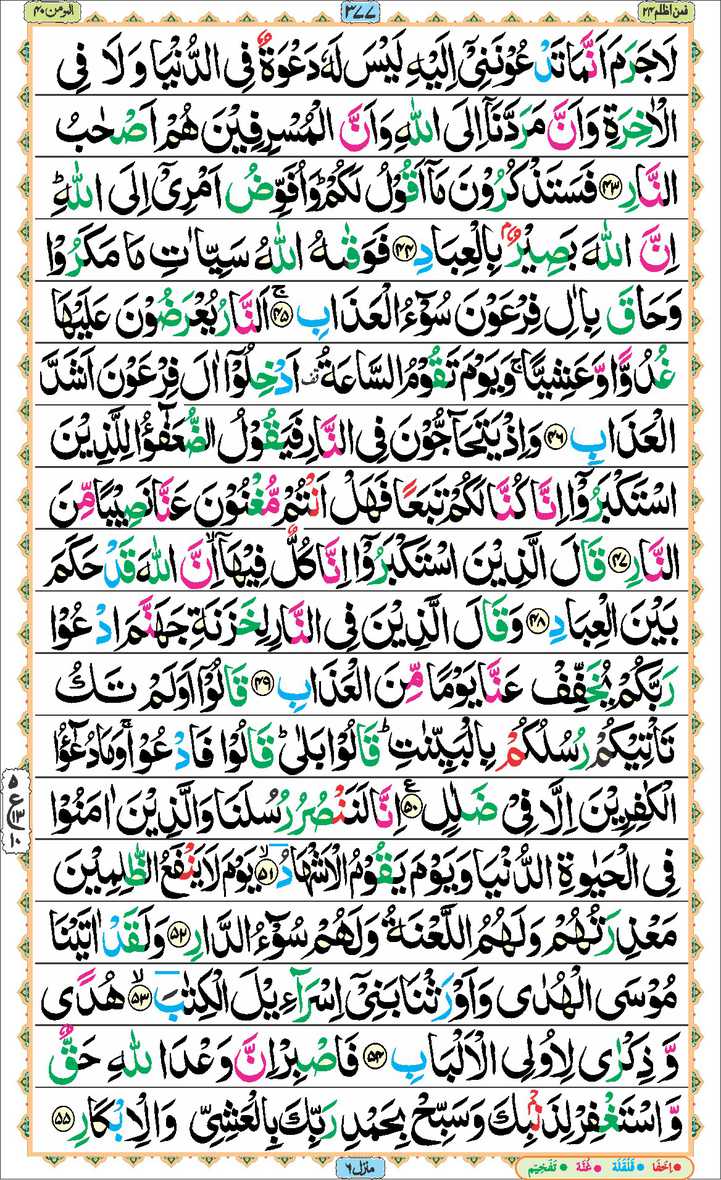 فمن اظلم ۲۴ ۳۷۷ المؤمن ۴۰
لَاجَرَمَ اَنَّمَا تَدْعُوْنَنِیْۤ اِلَیْهِ لَیْسَ لَهٗ دَعْوَةٌ فِی الدُّنْیَا وَ لَا فِی
الْاٰخِرَةِ وَ اَنَّ مَرَدَّنَاۤ اِلَی اللّٰهِ وَ اَنَّ الْمُسْرِفِیْنَ هُمْ اَصْحٰبُ
النَّارِ ﴿۴۳﴾ فَسَتَذْكُرُوْنَ مَاۤ اَقُوْلُ لَكُمْؕ وَ اُفَوِّضُ اَمْرِیْۤ اِلَی اللّٰهِؕ
اِنَّ اللّٰهَ بَصِیْرٌۢ بِالْعِبَادِ ﴿۴۴﴾ فَوَقٰىهُ اللّٰهُ سَیِّاٰتِ مَا مَكَرُوْا
وَ حَاقَ بِاٰلِ فِرْعَوْنَ سُوْٓءُ الْعَذَابِۚ ﴿۴۵﴾ اَلنَّارُ یُعْرَضُوْنَ عَلَیْهَا
غُدُوًّا وَّ عَشِیًّاۚ وَ یَوْمَ تَقُوْمُ السَّاعَةُ۫ اَدْخِلُوْۤا اٰلَ فِرْعَوْنَ اَشَدَّ
الْعَذَابِ ﴿۴۶﴾ وَ اِذْ یَتَحَآجُّوْنَ فِی النَّارِ فَیَقُوْلُ الضُّعَفٰٓؤُا لِلَّذِیْنَ
اسْتَكْبَرُوْۤا اِنَّا كُنَّا لَكُمْ تَبَعًا فَهَلْ اَنْتُمْ مُّغْنُوْنَ عَنَّا نَصِیْبًا مِّنَ
النَّارِ ﴿۴۷﴾ قَالَ الَّذِیْنَ اسْتَكْبَرُوْۤا اِنَّا كُلٌّ فِیْهَاۤۙ اِنَّ اللّٰهَ قَدْ حَكَمَ
بَیْنَ الْعِبَادِ ﴿۴۸﴾ وَ قَالَ الَّذِیْنَ فِی النَّارِ لِخَزَنَةِ جَهَنَّمَ ادْعُوْا
رَبَّكُمْ یُخَفِّفْ عَنَّا یَوْمًا مِّنَ الْعَذَابِ ﴿۴۹﴾ قَالُوْۤا اَوَ لَمْ تَكُ
تَاْتِیْكُمْ رُسُلُكُمْ بِالْبَیِّنٰتِؕ قَالُوْا بَلٰیؕ قَالُوْا فَادْعُوْاۚ وَ مَا دُعٰٓؤُا
الْكٰفِرِیْنَ اِلَّا فِیْ ضَلٰلٍ ع ﴿۵۰﴾ اِنَّا لَنَنْصُرُ رُسُلَنَا وَ الَّذِیْنَ اٰمَنُوْا
فِی الْحَیٰوةِ الدُّنْیَا وَ یَوْمَ یَقُوْمُ الْاَشْهَادُۙ ﴿۵۱﴾ یَوْمَ لَا یَنْفَعُ الظّٰلِمِیْنَ
مَعْذِرَتُهُمْ وَ لَهُمُ اللَّعْنَةُ وَ لَهُمْ سُوْٓءُ الدَّارِ ﴿۵۲﴾ وَ لَقَدْ اٰتَیْنَا
مُوْسَی الْهُدٰی وَ اَوْرَثْنَا بَنِیْۤ اِسْرَآءِیْلَ الْكِتٰبَۙ ﴿۵۳﴾ هُدًی
وَّ ذِكْرٰی لِاُولِی الْاَلْبَابِ ﴿۵۴﴾ فَاصْبِرْ اِنَّ وَعْدَ اللّٰهِ حَقٌّ
وَّ اسْتَغْفِرْ لِذَنْۢبِكَ وَ سَبِّحْ بِحَمْدِ رَبِّكَ بِالْعَشِیِّ وَ الْاِبْكَارِ ﴿۵۵﴾
۵ ع ۱۳ ۱۰
منزل ۶
اِخفَا قَلقَلَة غُنَّة تَفخِیم